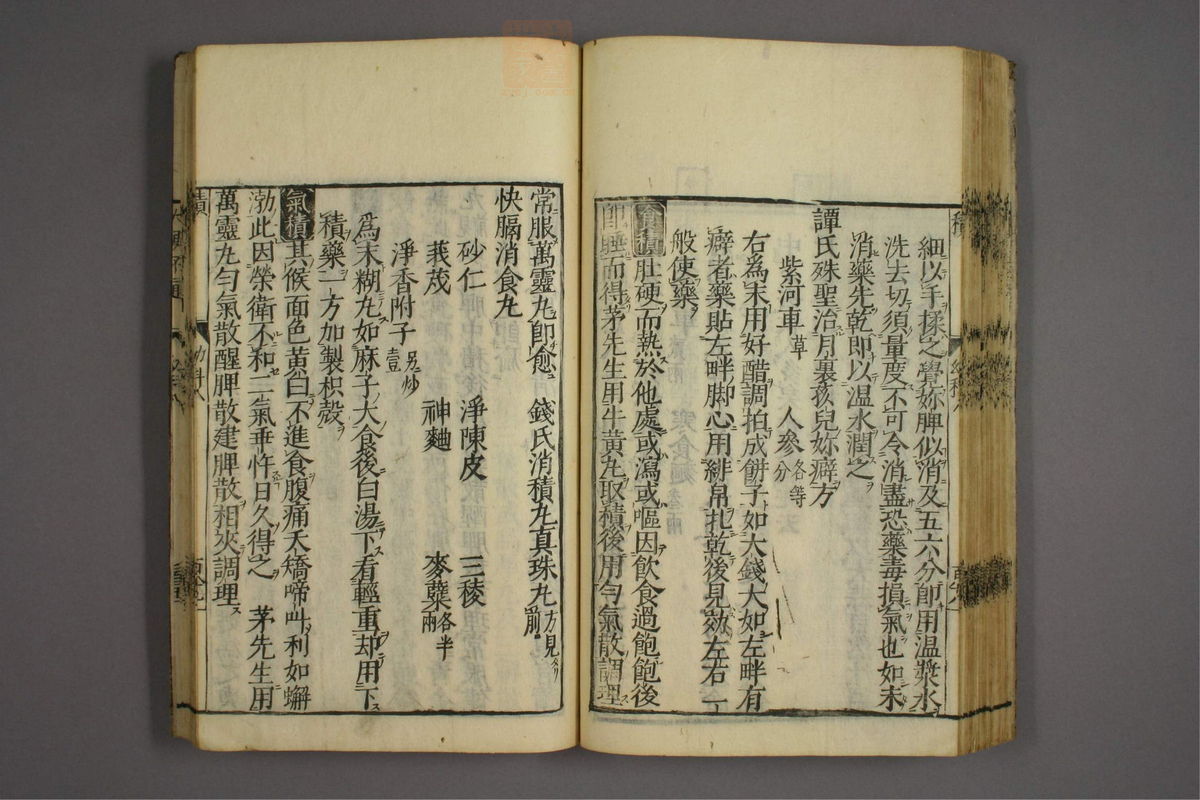 細以手揉之覺妳脾似消及五六分即用温漿水
洗去切須量度不可令消盡恐藥毒損氣也如未
消藥先乾即以温水潤之
譚氏殊聖治月裏孩兒妳癖方
紫河車草 人參各等分
右為末用好醋調拍成餅子如大錢大如左畔有
癖者藥貼左畔脚心用緋帛扎乾後見効左右一
般使藥
食積肚硬而熱於他處或瀉或嘔因飲食過飽飽後
即睡而得茅先生用牛黄丸取積後用勻氣散調理
常服萬靈丸即愈 錢氏消積丸真珠丸方見前
快膈消食丸
砂仁 淨陳皮 三稜
莪茂 神麯 麥蘖各半兩
淨香附子另炒壹
爲末糊丸如麻子大食後白湯下看輕重却用下
積藥一方加製枳殼
氣積其候面色黄白不進食腹痛夭矯啼叫利如蠏
渤此因榮衛不和二氣乖忤日久得之 茅先生用
萬靈丸勻氣散醒脾散建脾散相夾調理
積